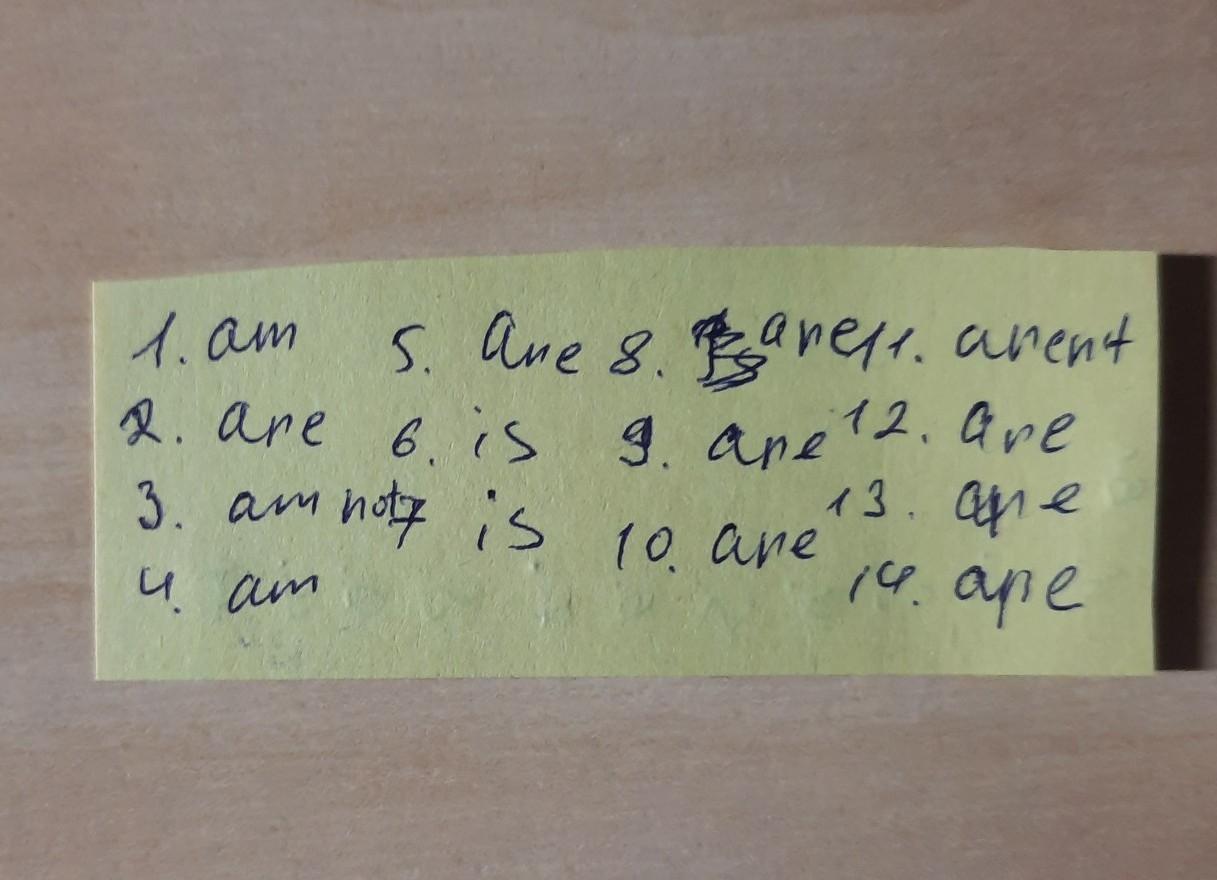 1. am 5. are 8. are 11. arent
2. are 6. is 9. are 12. are
3. am not 7 is 10. are 13. are
4. am 14. are